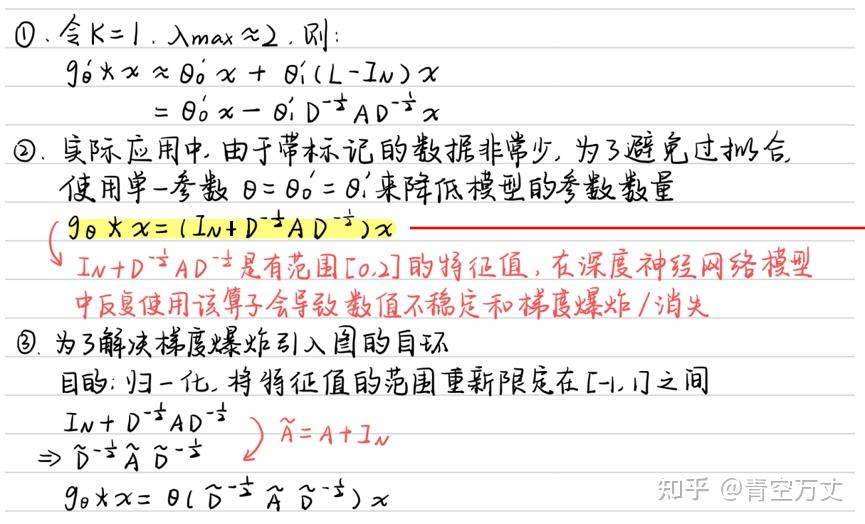 ①. 令K=1. λmax≈2. 则:
gθ'*x ≈ θ0'x + θ1'(L-IN)x
= θ0'x - θ1'D^-½AD^-½x
②. 实际应用中, 由于带标记的数据非常少, 为了避免过拟合,
使用单一参数 θ=θ0'=θ1'来降低模型的参数数量
gθ*x=(IN+D^-½AD^-½)x
IN+D^-½AD^-½是有范围[0,2]的特征值, 在深度神经网络模型
中反复使用该算子会导致数值不稳定和梯度爆炸/消失
③. 为了解决梯度爆炸引入图的自环
目的: 归一化, 将特征值的范围重新限定在[-1,1]之间
IN+D^-½AD^-½
Ã=A+IN
⇒ D̃^-½ÃD̃^-½
gθ*x=θ(D̃^-½ÃD̃^-½)x
知乎 @青空万丈